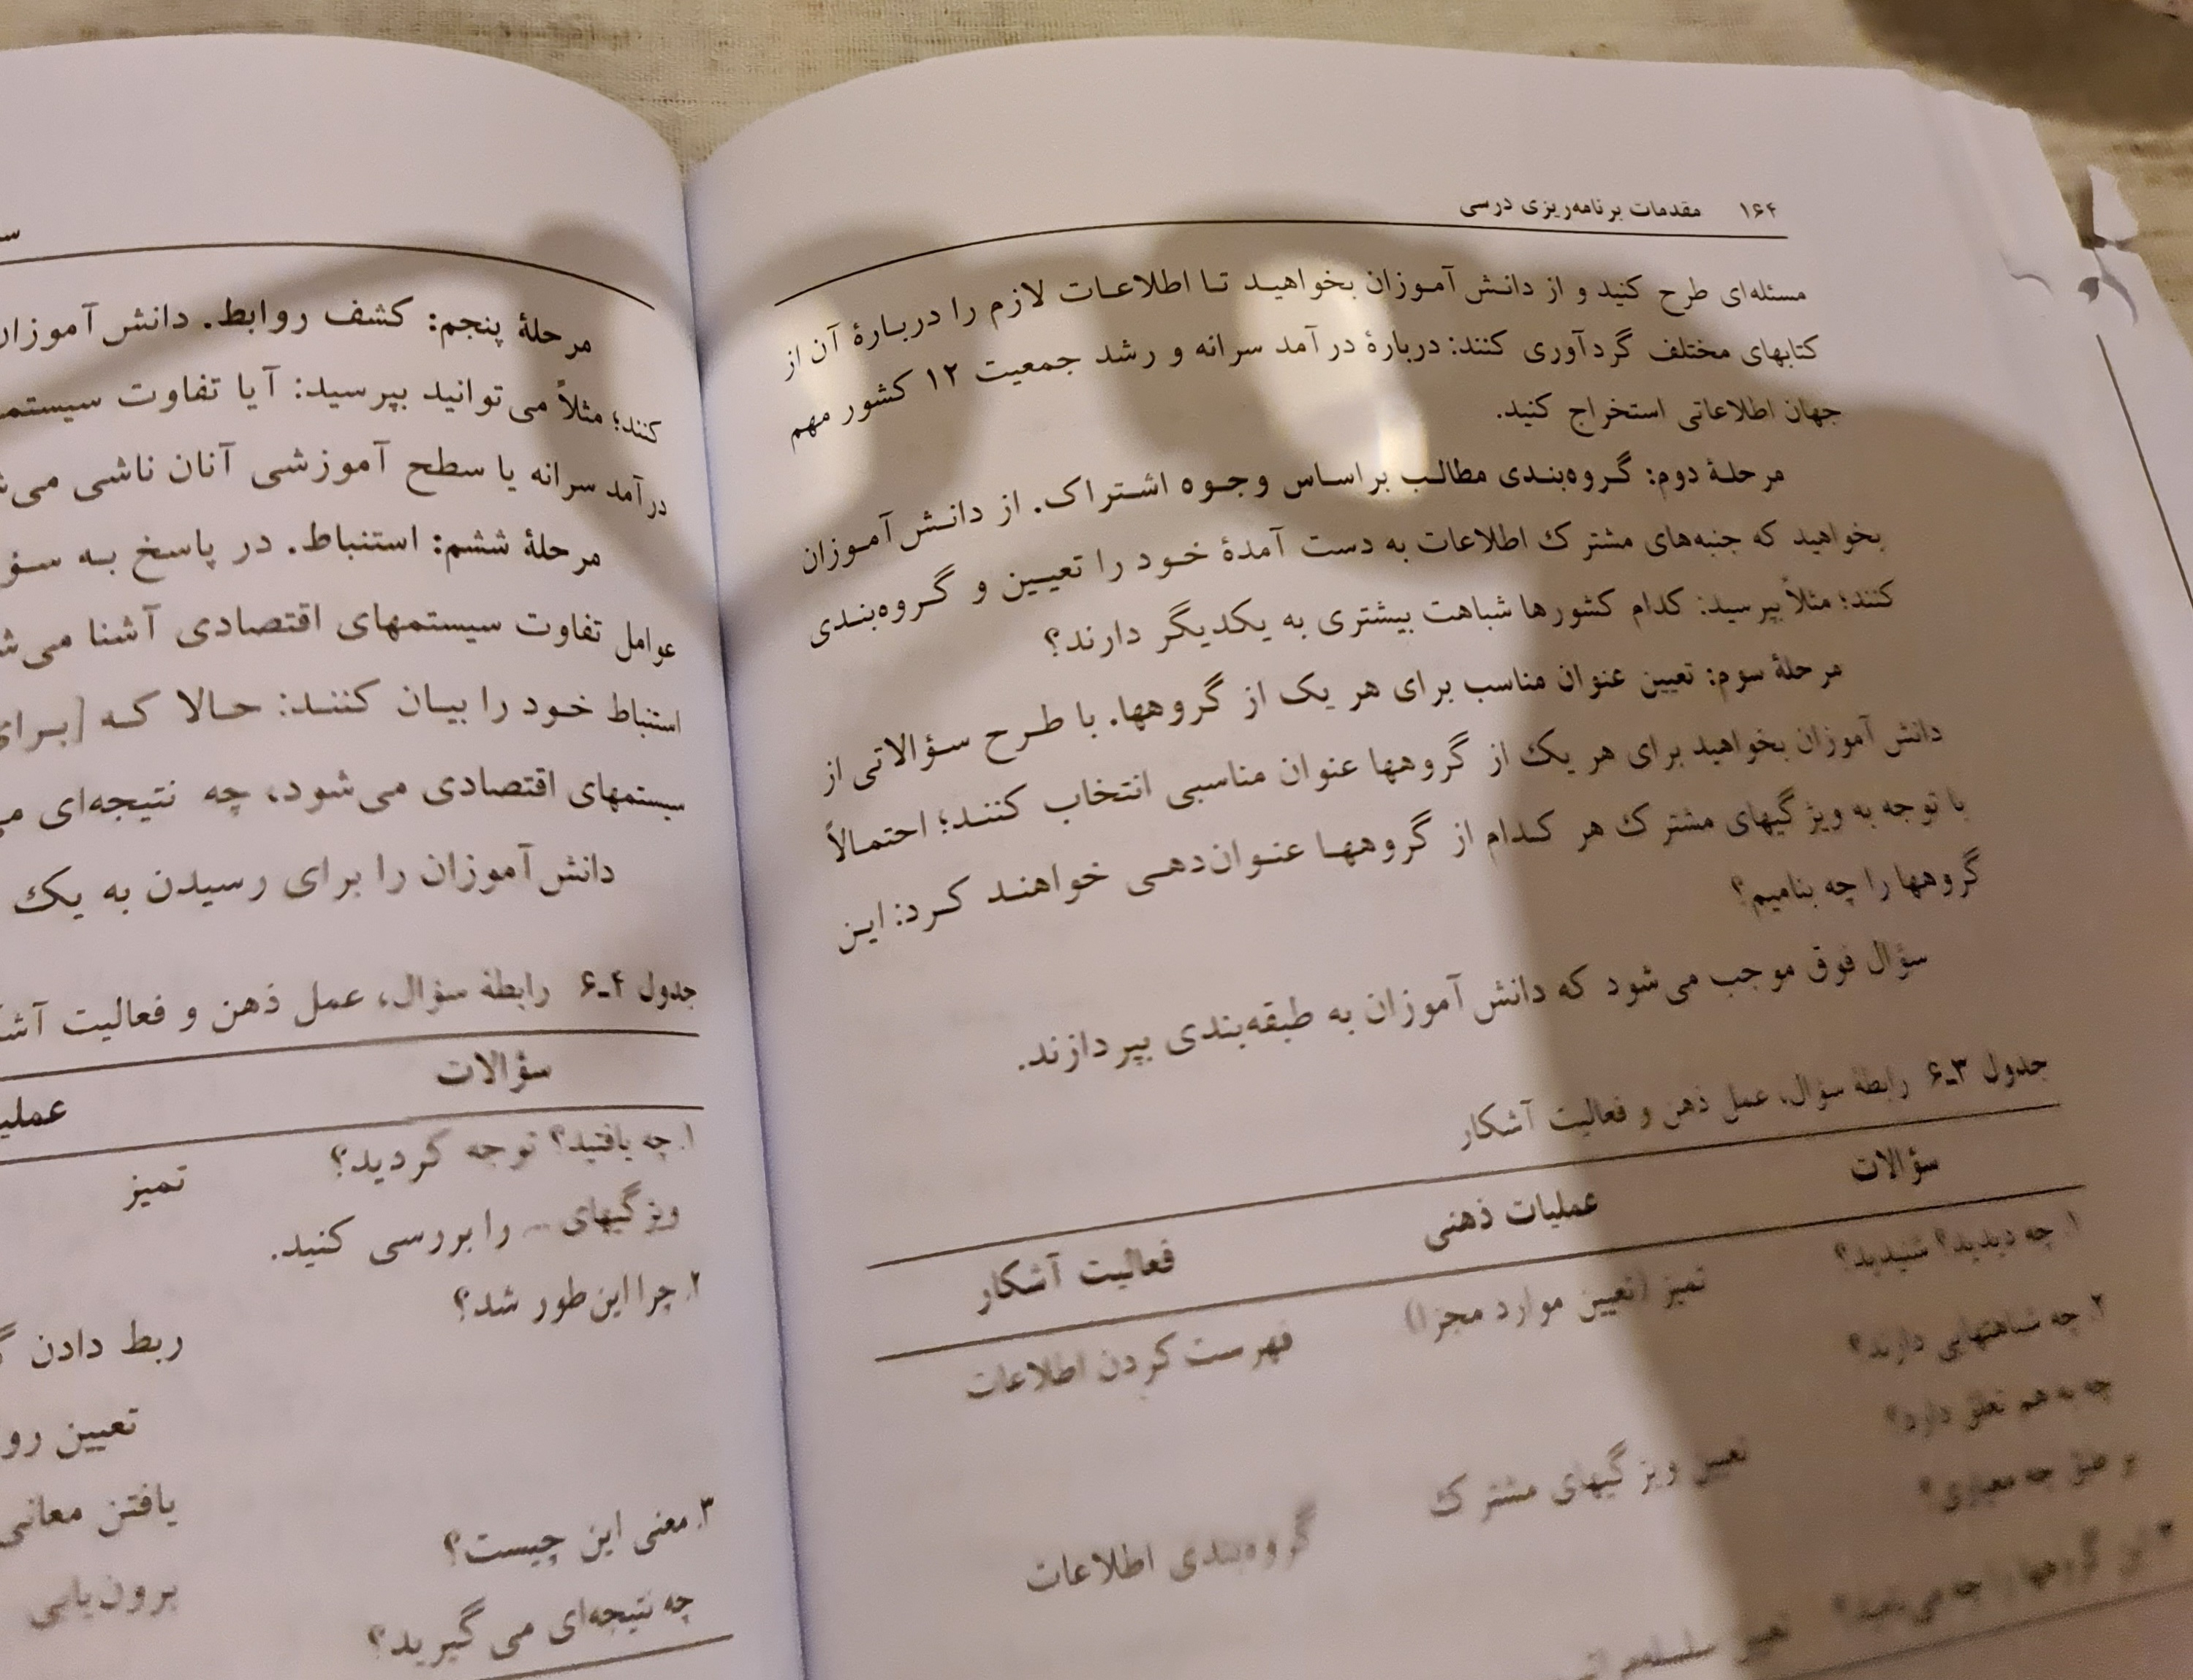 ۱۶۴ مقدمات برنامه‌ریزی درسی
مسئله‌ای طرح کنید و از دانش‌آموزان بخواهید تا اطلاعات لازم را دربارهٔ آن از
کتابهای مختلف گردآوری کنند: دربارهٔ درآمد سرانه و رشد جمعیت ۱۲ کشور مهم
جهان اطلاعاتی استخراج کنید.
مرحلهٔ دوم: گروه‌بندی مطالب براساس وجوه اشتراک. از دانش‌آموزان
بخواهید که جنبه‌های مشترک اطلاعات به دست آمدهٔ خود را تعیین و گروه‌بندی
کنند؛ مثلاً بپرسید: کدام کشورها شباهت بیشتری به یکدیگر دارند؟
مرحلهٔ سوم: تعیین عنوان مناسب برای هر یک از گروهها. با طرح سؤالاتی از
دانش‌آموزان بخواهید برای هر یک از گروهها عنوان مناسبی انتخاب کنند؛ احتمالاً
با توجه به ویژگیهای مشترک هر کدام از گروهها عنوان‌دهی خواهند کرد: این
گروهها را چه بنامیم؟
سؤال فوق موجب می‌شود که دانش‌آموزان به طبقه‌بندی بپردازند.
جدول ۳ـ۶ رابطهٔ سؤال، عمل ذهن و فعالیت آشکار
سؤالات عملیات ذهنی فعالیت آشکار
۱. چه دیدید؟ شنیدید؟ تمیز (تعیین موارد مجزا) فهرست کردن اطلاعات
۲. چه شباهتهایی دارند؟
چه به هم تعلق دارد؟
بر طبق چه معیاری؟ تعیین ویژگیهای مشترک گروه‌بندی اطلاعات
۳. این گروهها را چه می‌نامید؟ تعیین
مرحلهٔ پنجم: کشف روابط. دانش‌آموزان
کنند؛ مثلاً می‌توانید بپرسید: آیا تفاوت
درآمد سرانه یا سطح آموزشی آنان ناشی
مرحلهٔ ششم: استنباط. در پاسخ به
عوامل تفاوت سیستمهای اقتصادی آشنا
استنباط خود را بیان کنند: حالا که [برای
سیستمهای اقتصادی می‌شود، چه نتیجه‌ای
دانش‌آموزان را برای رسیدن به یک
جدول ۴ـ۶ رابطهٔ سؤال، عمل ذهن و فعالیت
سؤالات
۱. چه یافتید؟ توجه کردید؟ تمیز
ویژگیهای ... را بررسی کنید.
۲. چرا این‌طور شد؟ ربط دادن
تعیین
یافتن معانی
۳. معنی این چیست؟
چه نتیجه‌ای می‌گیرید؟ برون‌یابی